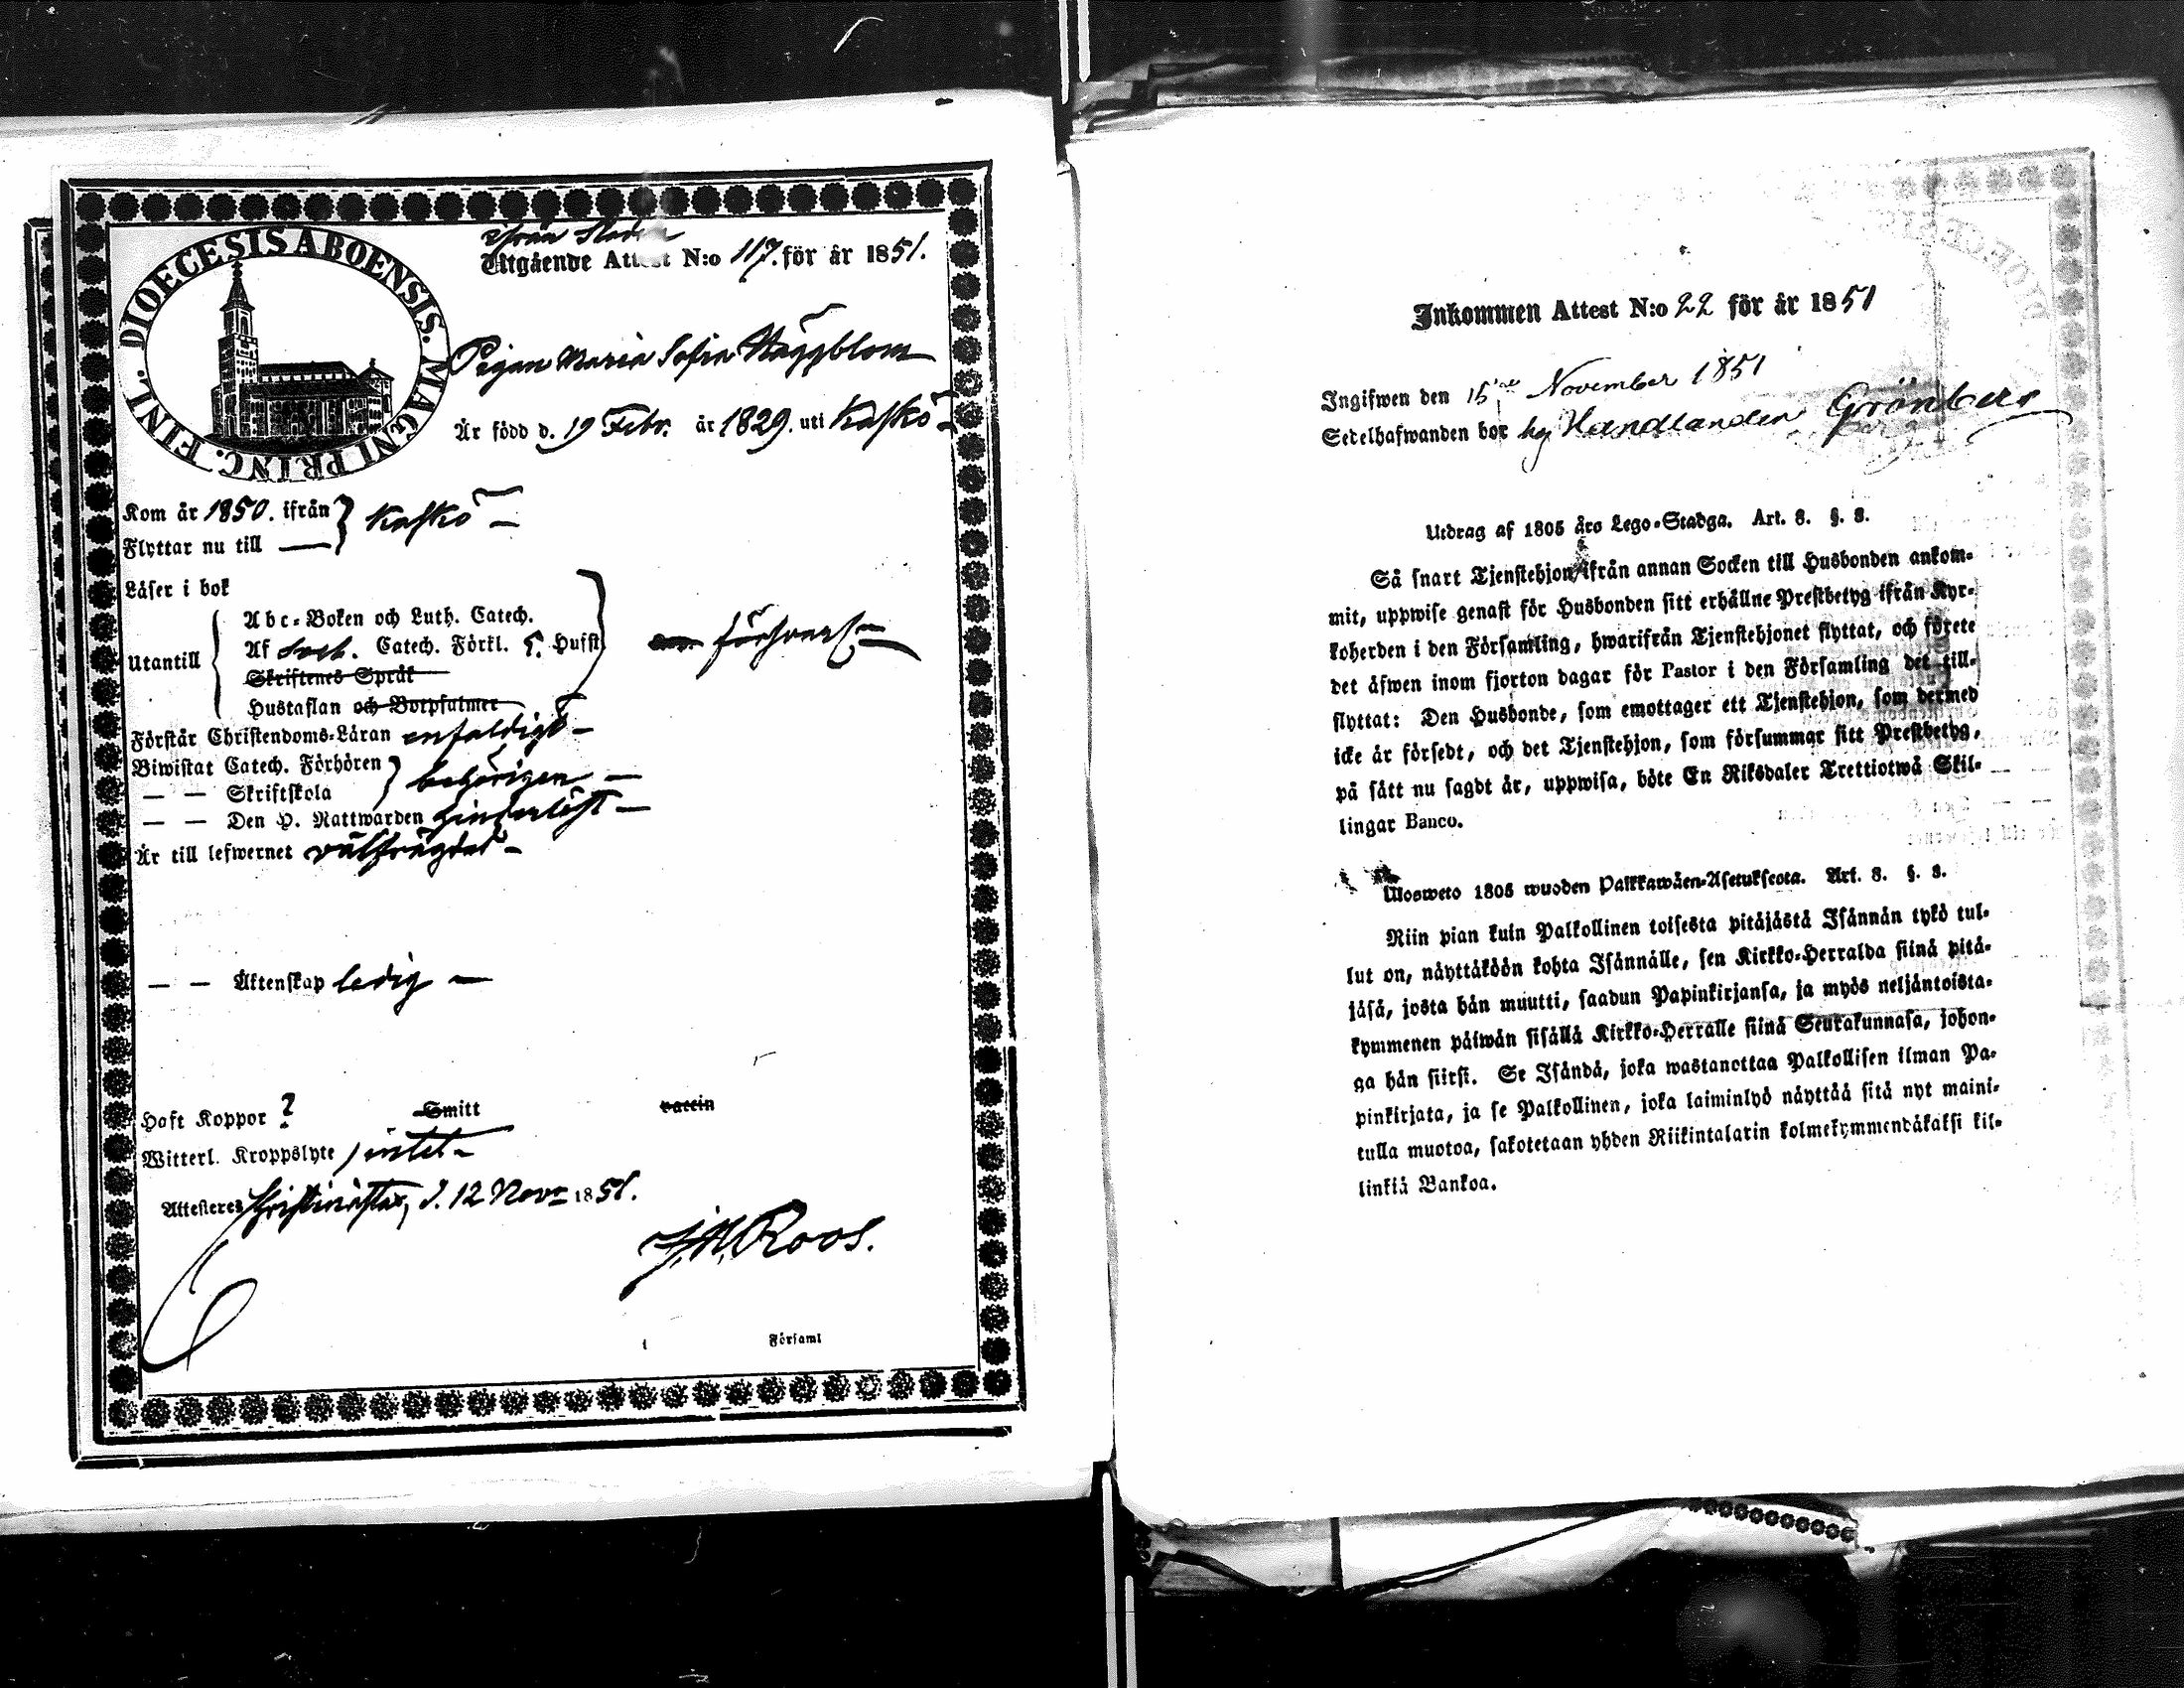 DIOECESIS ABOENSIS. MAGNI PRINC. FINL.
ifrån Staden
Utgående Attest N:o 117. för år 1851.
Pigan Maria Sofia Häggblom
Är född d. 19 Febr. år 1829. uti Kaskö
Kom år 1850. ifrån } Kaskö —
Flyttar nu till —
Läser i bok
Abc-Boken och Luth. Catech.
Utantill Af Sveb. Catech. Förkl. 5. Hufst. försvarl.
Skriftenes Språk
Hustaflan och Botpsalmer
Förstår Christendoms-Läran enfaldigt —
Biwistat Catech. Förhören } behörigen —
— — Skriftskola
— — Den H. Nattwarden hinderlöst —
Är till lefwernet välfrägdad —
— — Äktenskap ledig —
Haft Koppor ? Smitt vaccin
Witterl. Kroppslyte intet —
Attesteres Christinestad, d. 12 Nov. 1851.
Roos.
Församl
Inkommen Attest N:o 22 för år 1851
Ingifwen den 15 November 1851
Sedelhafwanden bor hg Handlanden Grönberg
Utdrag af 1805 års Lego-Stadga. Art. 3. §. 3.
Så snart Tjenstehjon ifrån annan Socken till Husbonden ankom-
mit, uppwise genast för Husbonden sitt erhållne Prestbetyg ifrån Kyr-
koherden i den Församling, hwarifrån Tjenstehjonet flyttat, och förete
det äfwen inom fjorton dagar för Pastor i den Församling det till-
flyttat: Den Husbonde, som emottager ett Tjenstehjon, som dermed
icke är försedt, och det Tjenstehjon, som försummar sitt Prestbetyg,
på sätt nu sagdt är, uppwisa, böte En Riksdaler Trettiotwå Skil-
lingar Banco.
Ulosweto 1805 wuoden Palkkawäen-Asetuksesta. Art. 3. §. 3.
Niin pian kuin Palkollinen toisesta pitäjästä Isännän tykö tul-
lut on, näyttäköön kohta Isännälle, sen Kirkko-Herralda siinä pitä-
jäsä, josta hän muutti, saadun Papinkirjansa, ja myös neljäntoista-
kymmenen päiwän sisällä Kirkko-Herralle siinä Seurakunnasa, johon-
ga hän siirsi. Se Isändä, joka wastanottaa Palkollisen ilman Pa-
pinkirjata, ja se Palkollinen, joka laiminlyö näyttää sitä nyt maini-
tulla muotoa, sakotetaan yhden Riikintalarin kolmekymmendäkaksi kil-
linkiä Bankoa.